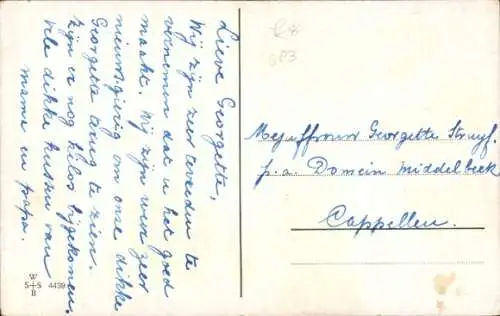 Lieve Georgette,
Wij zijn zeer tevreden te
vernemen dat u het goed
maakt. Wij zijn weer zeer
nieuwsgierig om onze dikke
Georgette terug te zien.
Zijn er nog kilos bijgekomen.
Vele dikke kussen van
mama en papa.
W
S+S 4459
B
Mejuffrouw Georgette Struyf.
p.a. Domein Middelbeek
Cappellen.